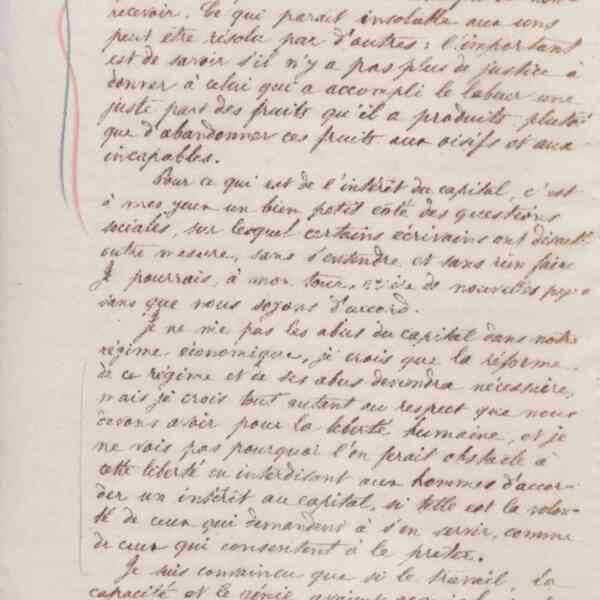 recevoir. Ce qui parait insoluble aux uns
peut être résolu par d'autres ; l'important
est de savoir s'il n'y a pas plus de justice à
donner à celui qui a accompli le labeur une
juste part des fruits qu'il a produits plutôt
que d'abandonner ces fruits aux oisifs et aux
incapables.
Pour ce qui est de l'intérêt du capital, c'est
à mes yeux un bien petit côté des questions
sociales, sur lequel certains écrivains ont discuté
outre mesure, sans s'entendre et sans rien faire
Je pourrais, à mon tour, de nouvelles pages
sans que nous soyons d'accord.
Je ne nie pas les abus du capital dans notre
régime économique, je crois que la réforme
de ce régime et de ses abus deviendra nécessaire,
mais je crois tout autant au respect que nous
devons avoir pour la liberté humaine, et je
ne vois pas pourquoi l'on ferait obstacle à
cette liberté en interdisant aux hommes d'accor-
der un intérêt au capital, si telle est la volon-
té de ceux qui demandent à s'en servir, comme
de ceux qui consentent à le prêter.
Je suis convaincu que si le travail, la
capacité et le génie avaient